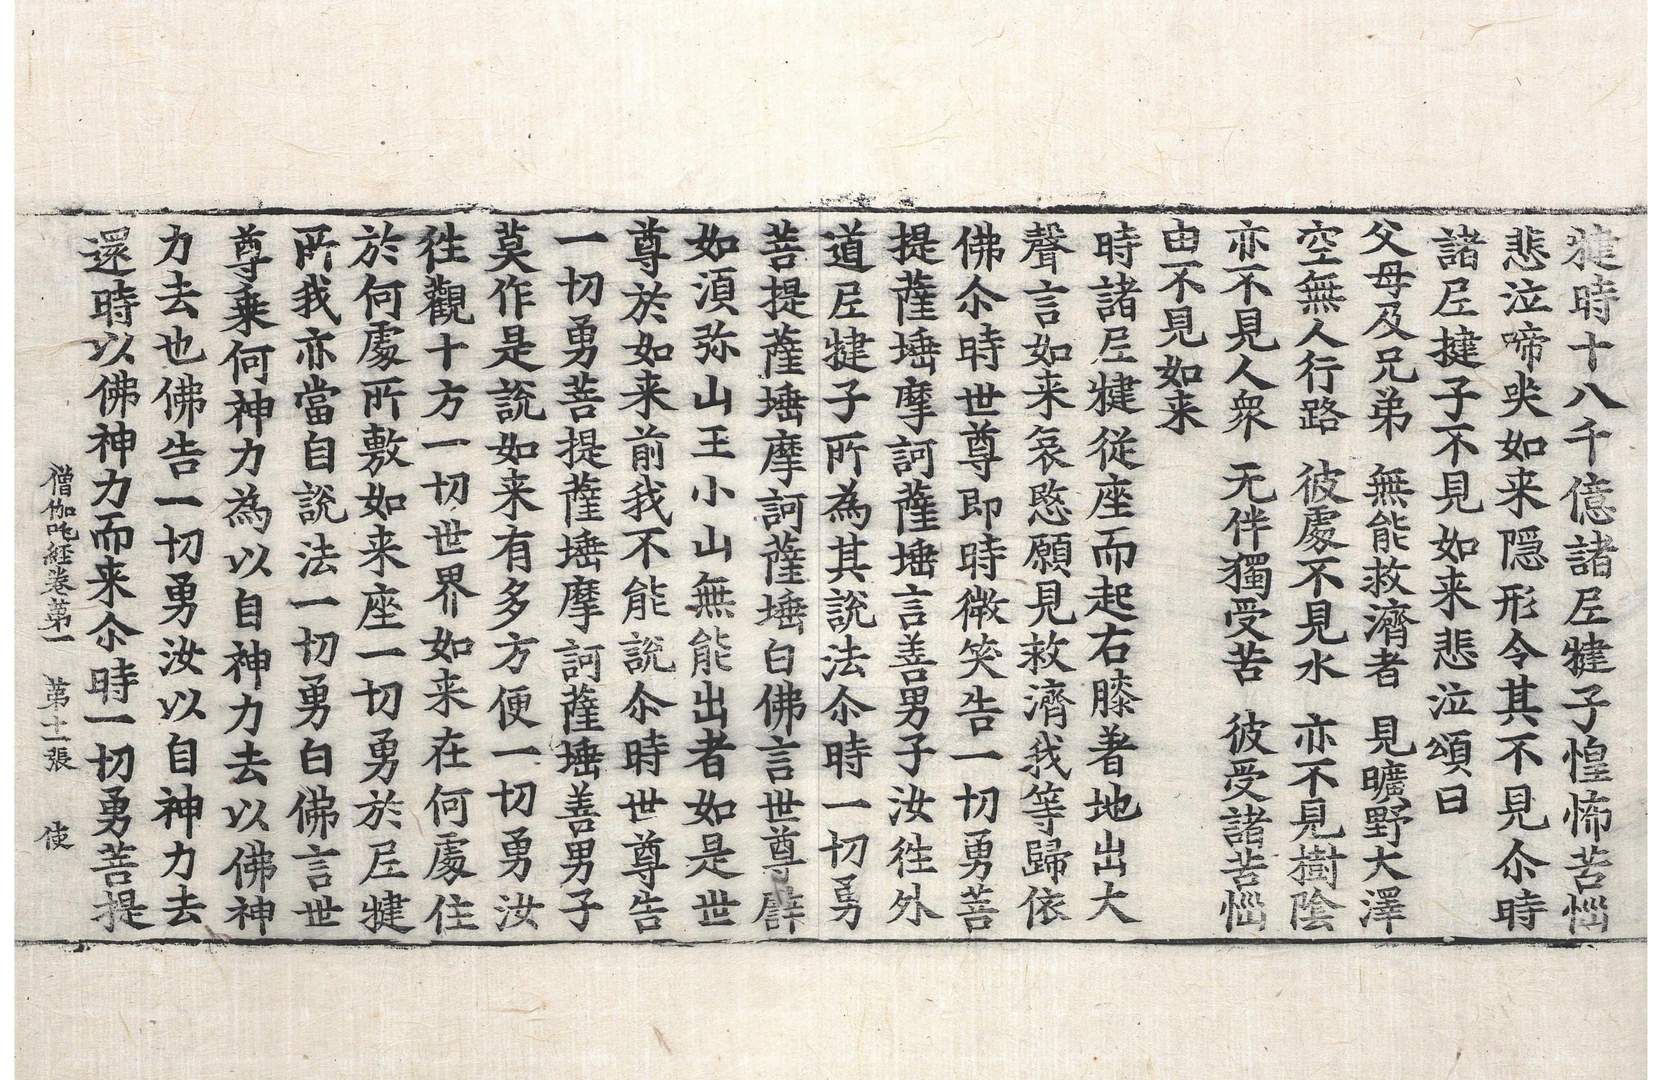 揵時十八千億諸𡰱犍子惶怖苦惱
悲泣啼哭如来隱形令其不見尒時
諸𡰱揵子不見如来悲泣頌曰
父母及兄弟　無能救濟者　見曠野大澤
空無人行路　彼處不見水　亦不見樹陰
亦不見人衆　无伴獨受苦　彼受諸苦惱
由不見如来
時諸𡰱犍從座而起右膝著地出大
聲言如来哀愍願見救濟我等歸依
佛尒時世尊即時微笑告一切勇菩
提薩埵摩訶薩埵言善男子汝徃外
道𡰱犍子所為其說法尒時一切勇
菩提薩埵摩訶薩埵白佛言世尊譬
如須弥山王小山無能出者如是世
尊於如来前我不能說尒時世尊告
一切勇菩提薩埵摩訶薩埵善男子
莫作是說如来有多方便一切勇汝
徃觀十方一切世界如来在何處住
於何處所敷如来座一切勇於𡰱犍
所我亦當自說法一切勇白佛言世
尊乘何神力為以自神力去以佛神
力去也佛告一切勇汝以自神力去
還時以佛神力而来尒時一切勇菩提
僧伽吒経卷第一　第十二張　使